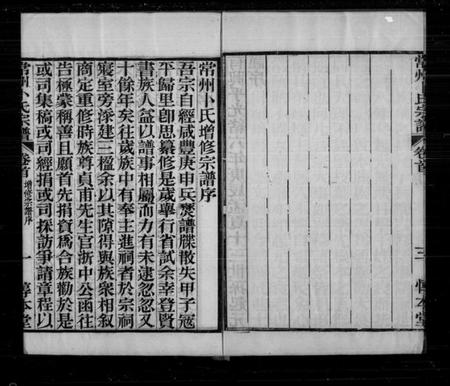 常州卜氏宗譜
卷首
三
惇本堂
常州卜氏增修宗譜序
吾宗自經咸豐庚申兵燹譜牒散失甲子冦
平歸里卽思纂修是歲舉行省試余幸登賢
書族人益以譜事相屬而力有未逮忽忽又
十餘年矣往歲族中有奉主進祠者於宗祠
寢室旁深建三楹余以其隙得與族衆相叙
商定重修時族尊貞甫先生官浙中公函往
告極蒙稱善且願首先捐資爲合族勸於是
或司集稿或司經捐或司探訪爭請章程以
常州卜氏宗譜
卷首
增修宗譜序
一
惇本堂